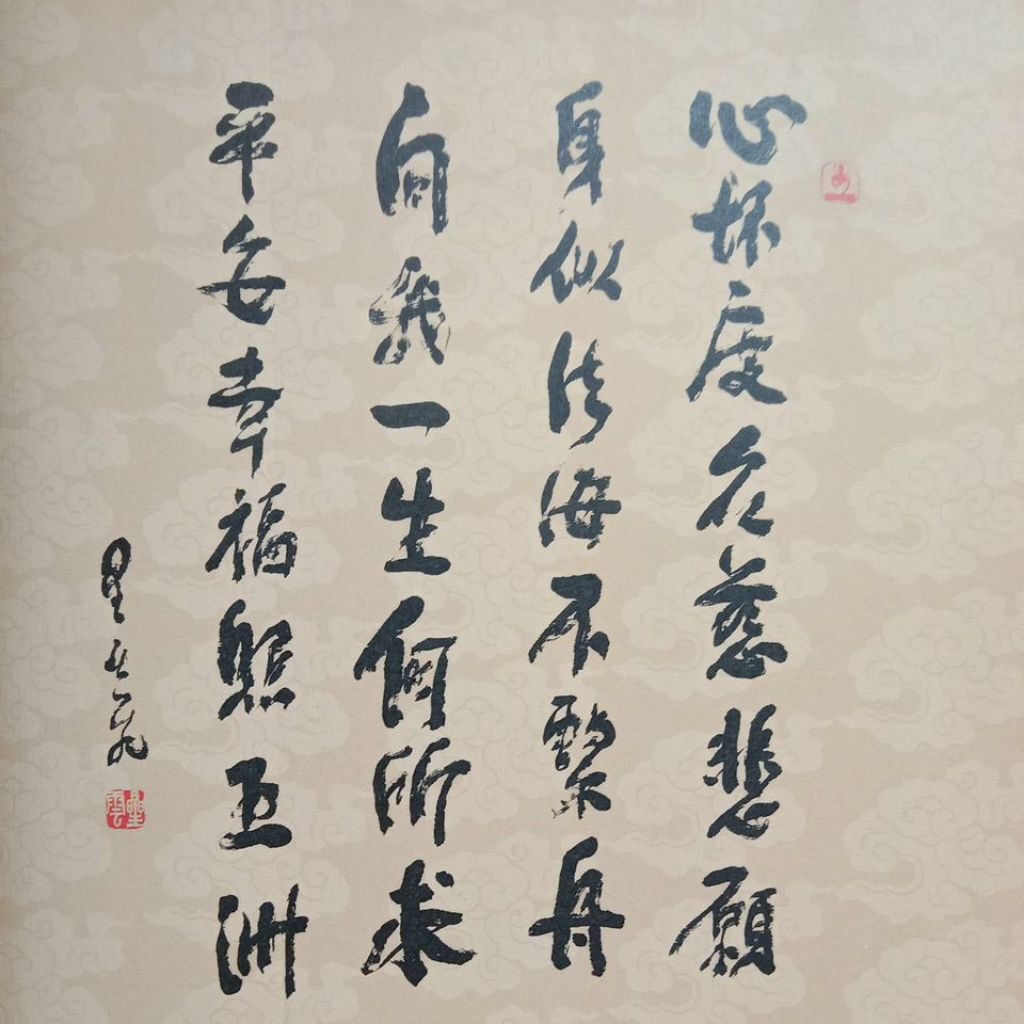 心怀度众慈悲願
身似法海不繫舟
問我一生何所求
平安幸福照五洲
星雲